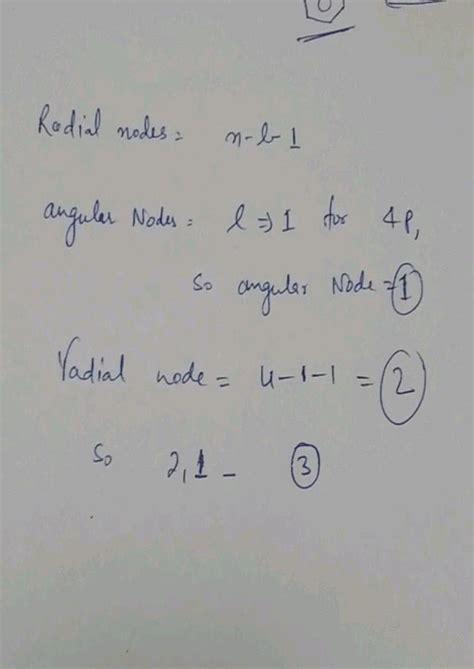 Radial nodes = n-l-1
angular Nodes = l ⇒ 1 for 4p,
so angular Node = 1
radial node = 4-1-1 = 2
So 2,1 - 3